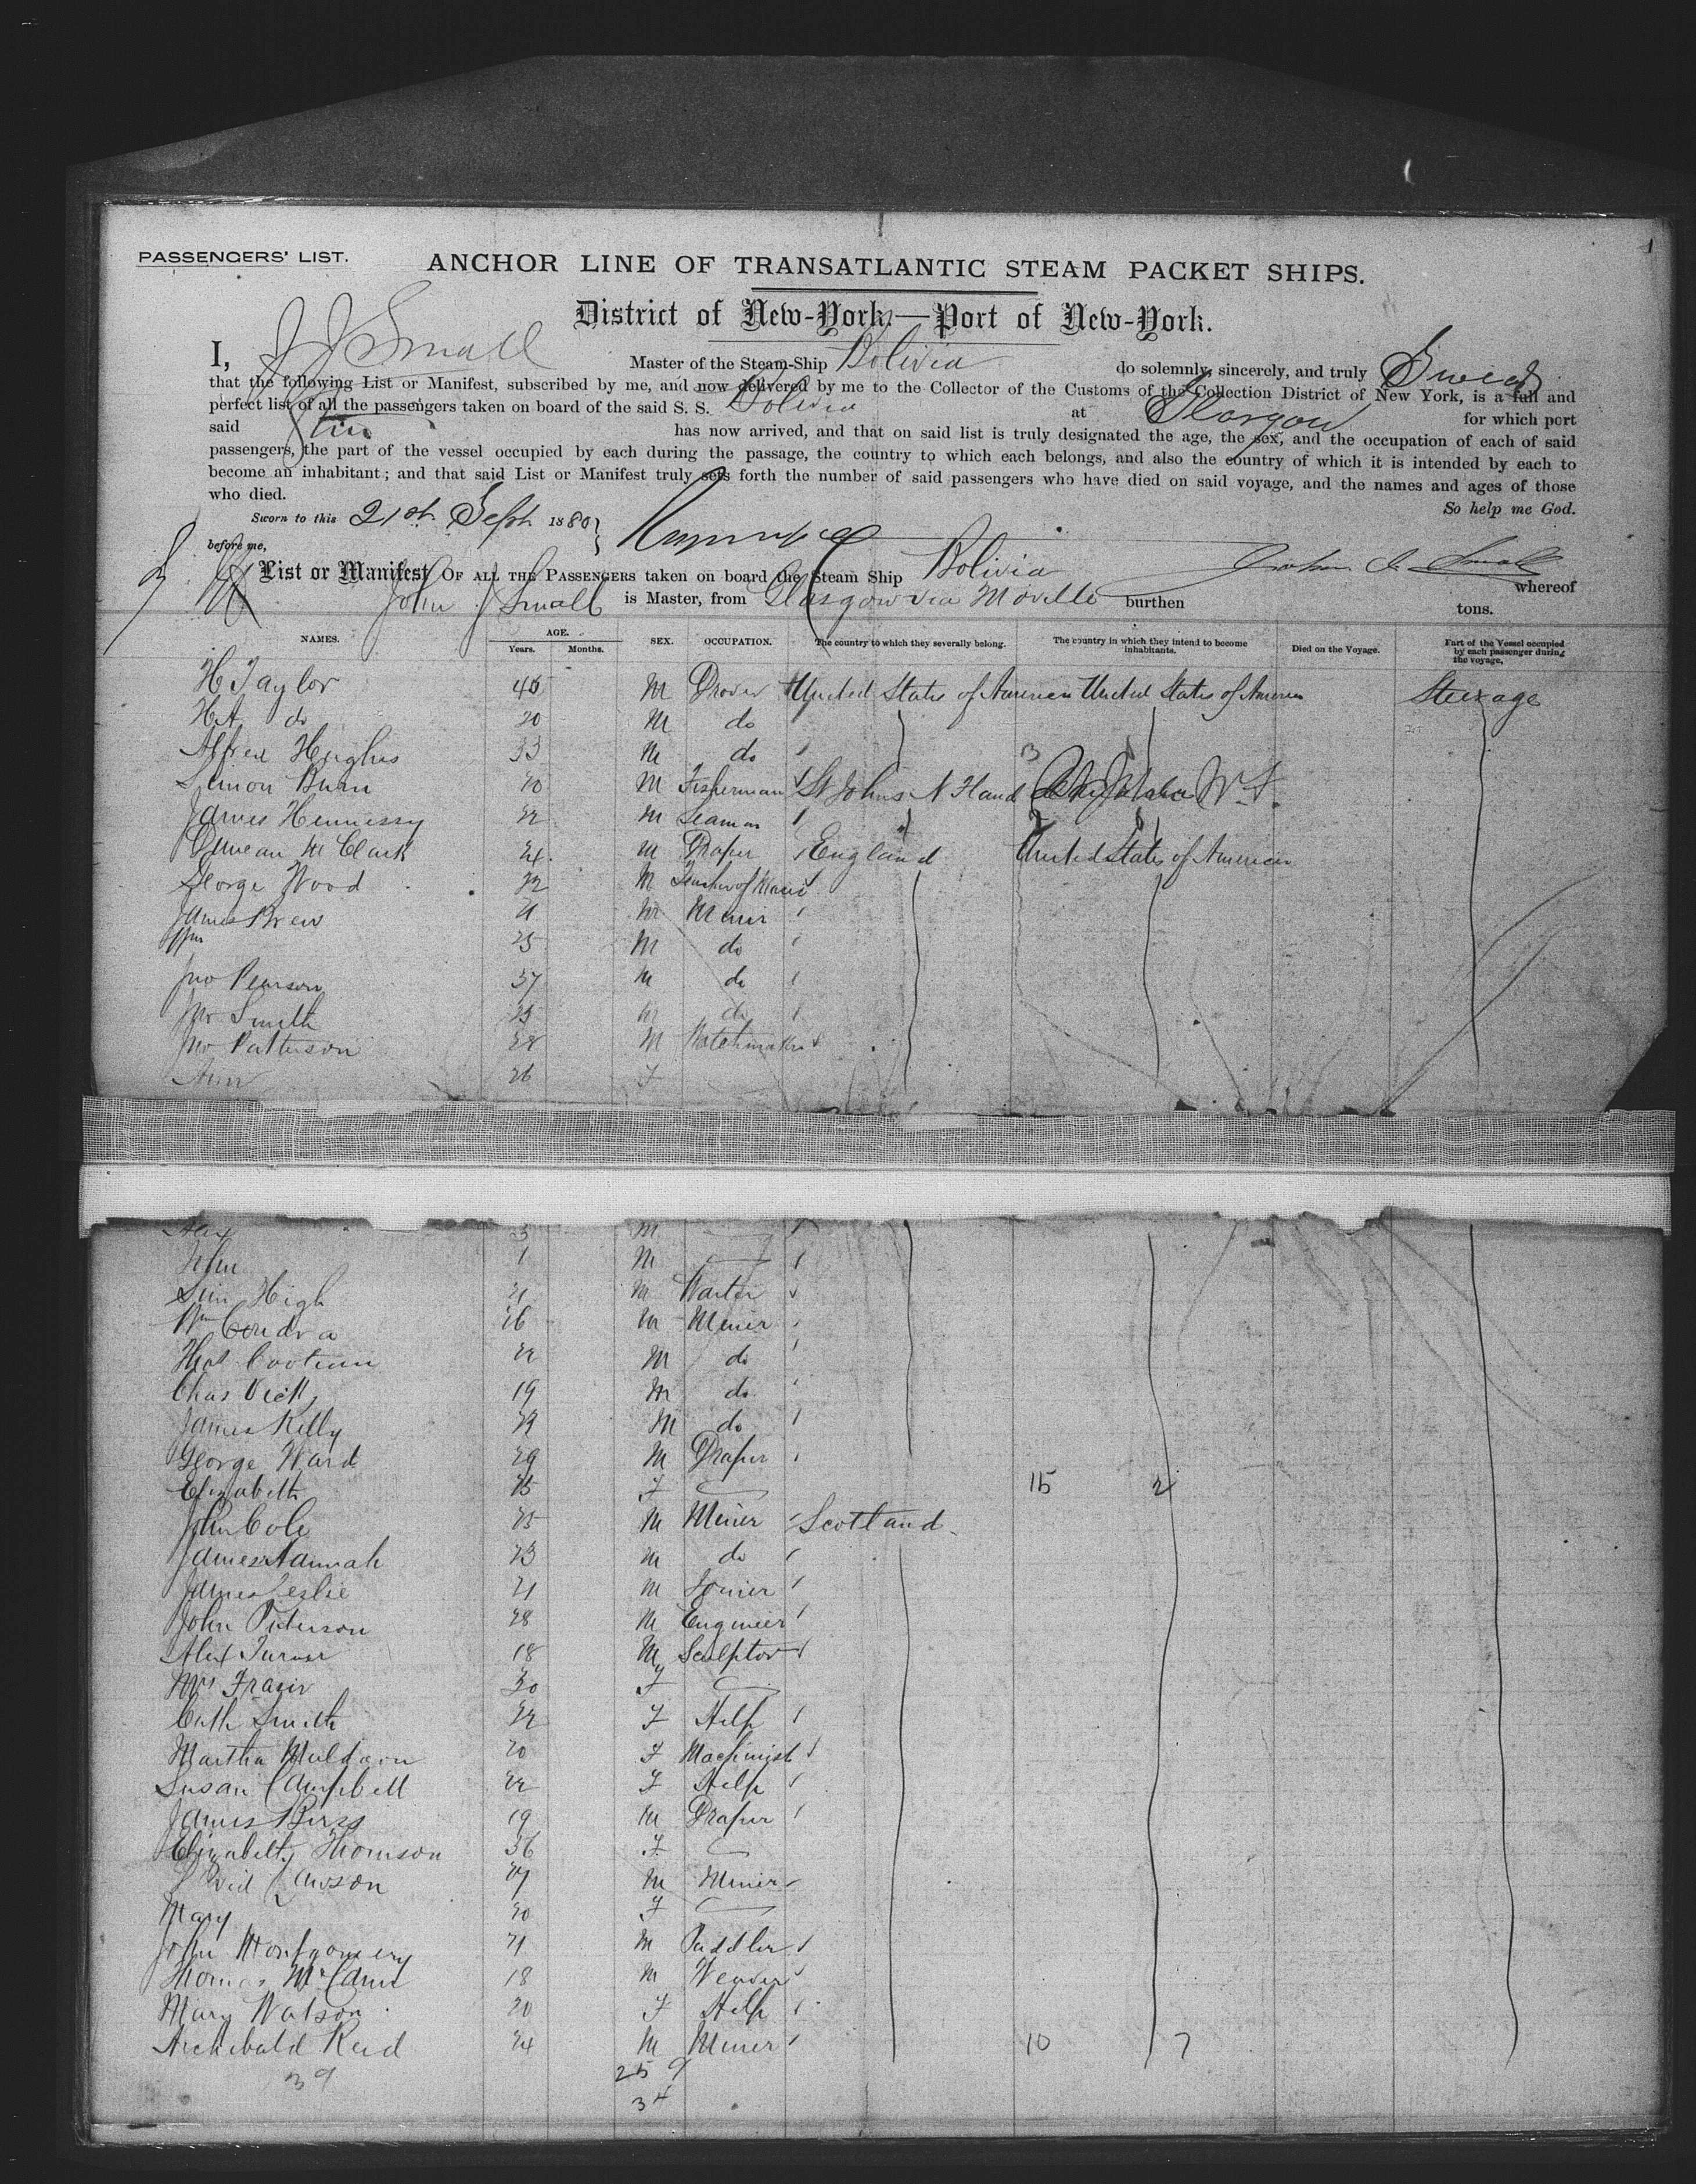 1
PASSENGERS' LIST.
ANCHOR LINE OF TRANSATLANTIC STEAM PACKET SHIPS.
District of New-York.—Port of New-York.
I, J J Small Master of the Steam-Ship Bolivia do solemnly, sincerely, and truly Swear
that the following List or Manifest, subscribed by me, and now delivered by me to the Collector of the Customs of the Collection District of New York, is a full and
perfect list of all the passengers taken on board of the said S. S. Bolivia at Glasgow for which port
said has now arrived, and that on said list is truly designated the age, the sex, and the occupation of each of said
passengers, the part of the vessel occupied by each during the passage, the country to which each belongs, and also the country of which it is intended by each to
become an inhabitant; and that said List or Manifest truly sets forth the number of said passengers who have died on said voyage, and the names and ages of those
who died.
So help me God.
Sworn to this 21st Sept 1880
before me,
List or Manifest OF ALL THE PASSENGERS taken on board the Steam Ship Bolivia whereof
John J Small is Master, from Glasgow via Moville burthen tons.
NAMES. AGE. Years. Months. SEX. OCCUPATION. The country to which they severally belong. The country in which they intend to become inhabitants. Died on the Voyage. Part of the Vessel occupied by each passenger during the voyage.
H Taylor M Drover United States of America United States of America Steerage
H A do 20 M do
Alfred Hughes 33 M do
M Fisherman St Johns N Fland
James Hennessy 22 M Seaman
Duncan McClark 24 M Draper England United States of America
George Wood 22 M Teacher of Music
James Brew 21 M Miner
Wm 25 M do
Jno Pearson 37 M do
Jno Smith M do
Jno Patterson 28 M Watchmaker
Ann 26 F
Alex 3 M
John 1 M
High 21 M
Wm 26 M Miner
Thos 22 M do
Chas 19 M do
James Kelly M do
George Ward 29 M Draper
Elizabeth 25 F 15 2
John Cole 25 M Miner Scotland
James Hannah 23 M do
James Leslie 21 M Joiner
John Peterson 28 M Engineer
Alex Turner 18 M Sculptor
Mrs Frasir 30 F
Cath Smith 22 F Help
Martha Muldoon 20 F Machinist
Susan Campbell 22 F Help
James Birss 19 M Draper
Elizabeth Thomson 36 F
David Lawson M Miner
Mary 20 F
John Montgomery 21 M Puddler
Thomas McCann 18 M Weaver
Mary Watson 20 F Help
Archibald Reid 24 M Miner 10 7
39 25 9
34